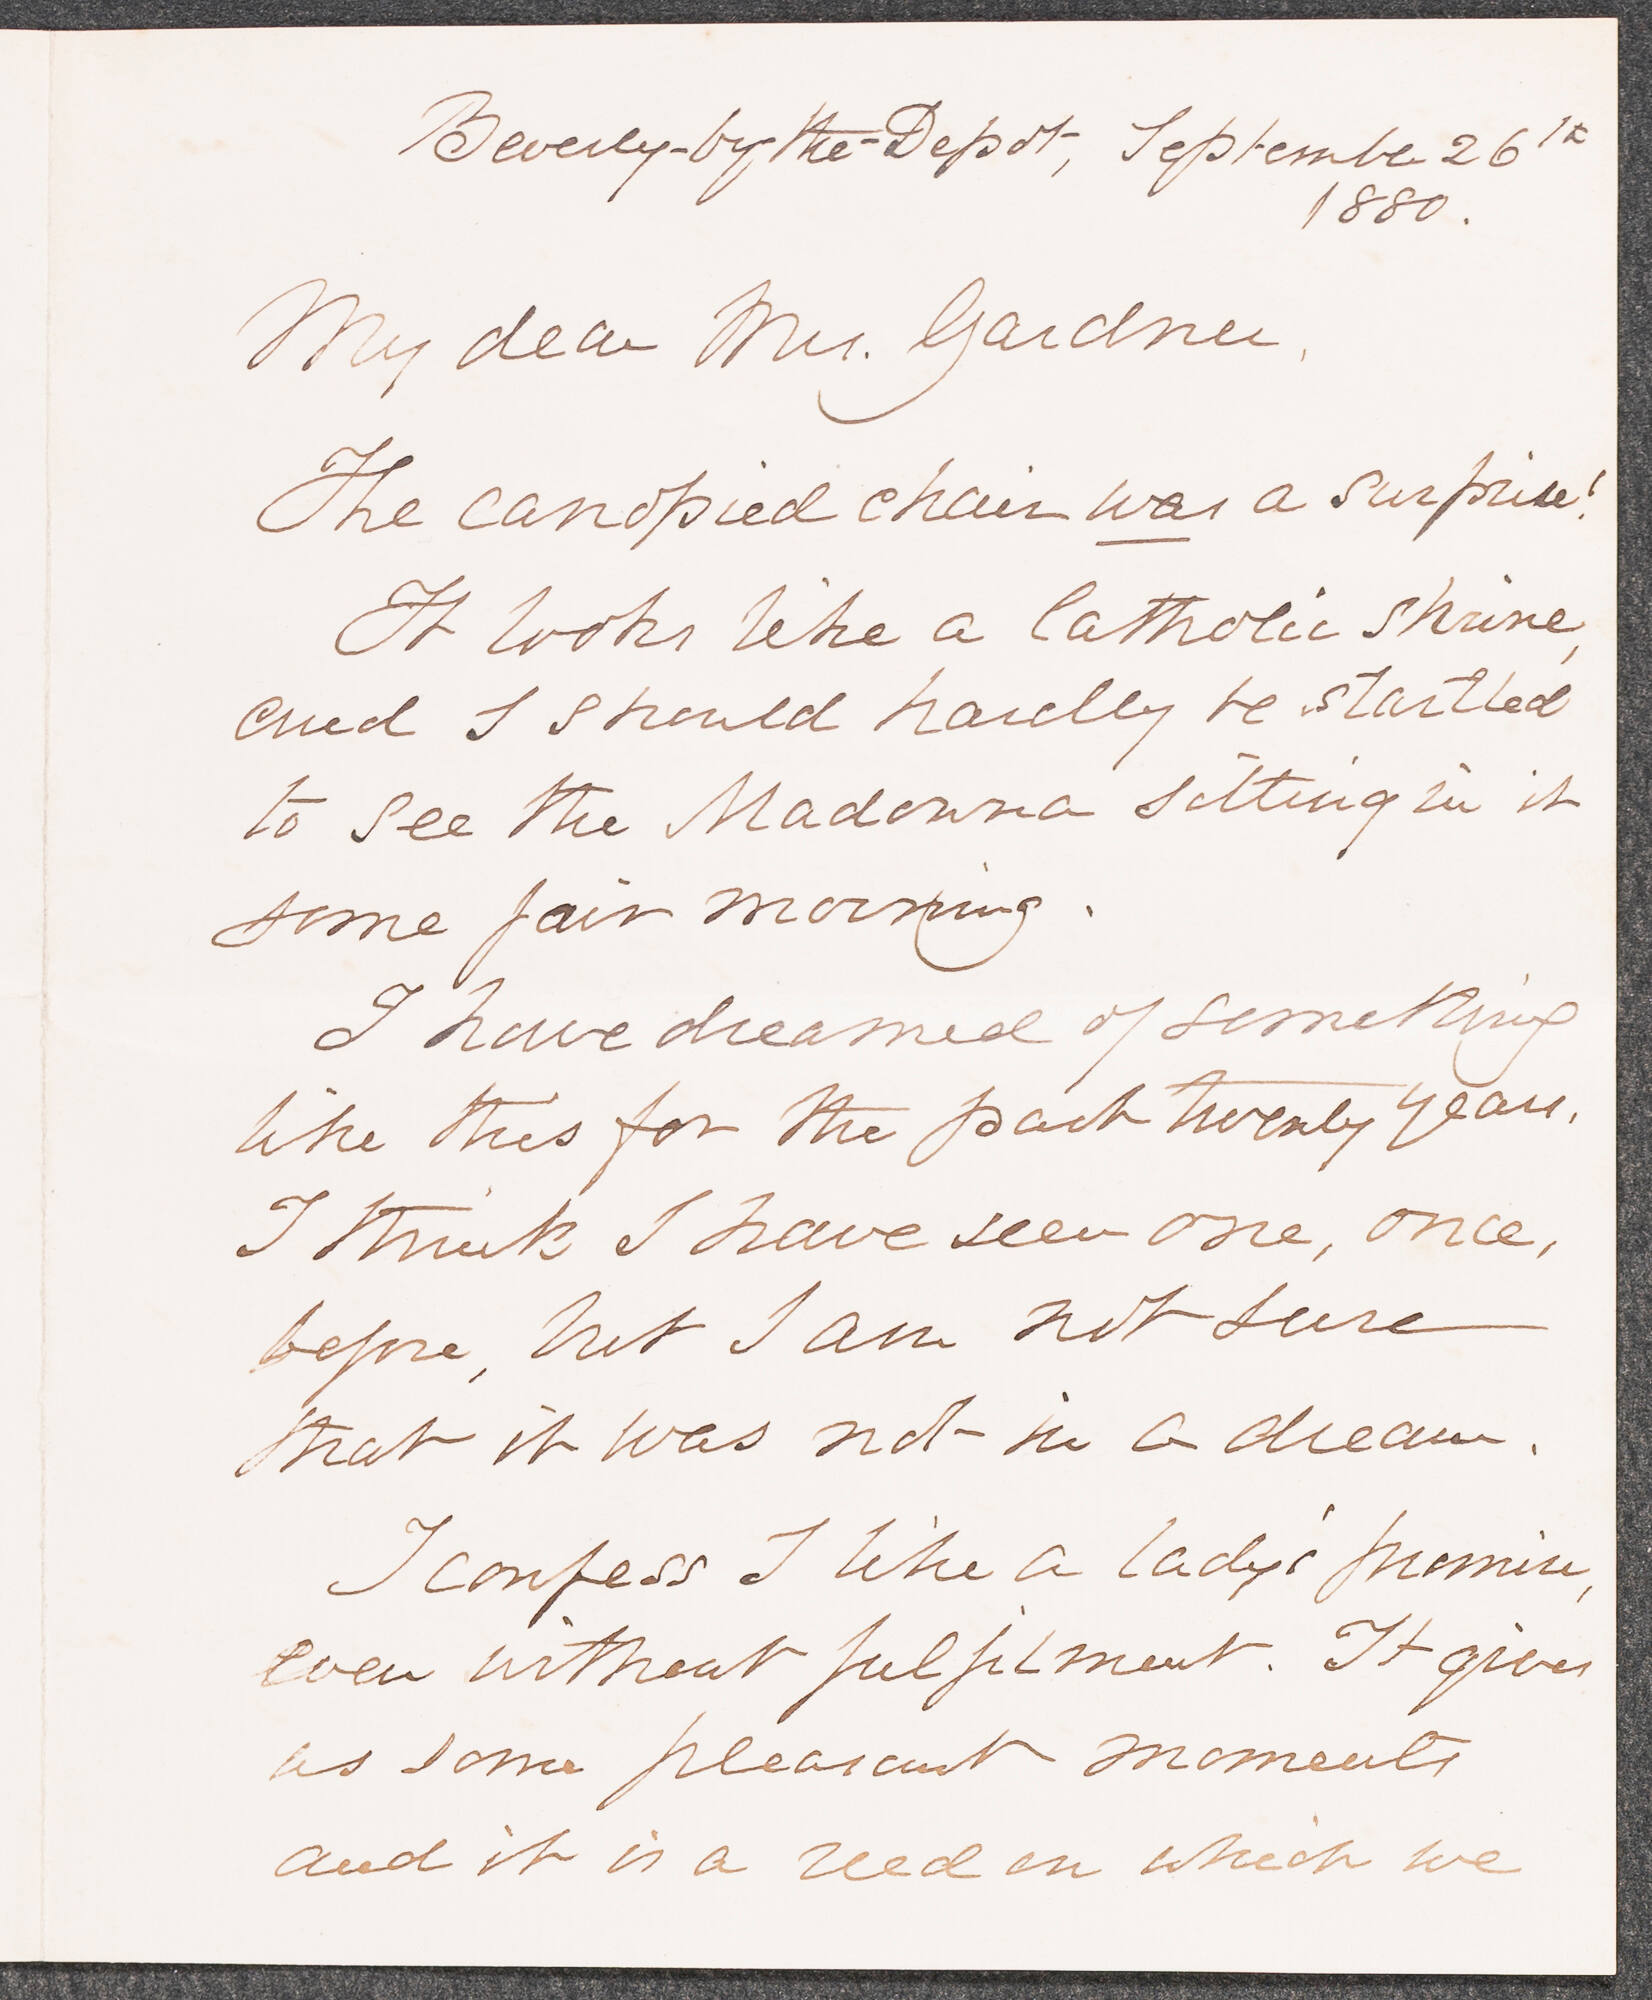 Beverly-by-the-Depot, September 26th
1880.
My dear Mrs. Gardner,
The canopied chair was a surprise!
It looks like a Catholic shrine,
and I should hardly be startled
to see the Madonna sitting in it
some fair morning.
I have dreamed of something
like this for the past twenty years.
I think I have seen one, once,
before, but I am not sure
that it was not in a dream.
I confess I like a lady's promise,
even without fulfilment. It gives
us some pleasant moments
and it is a reed on which we